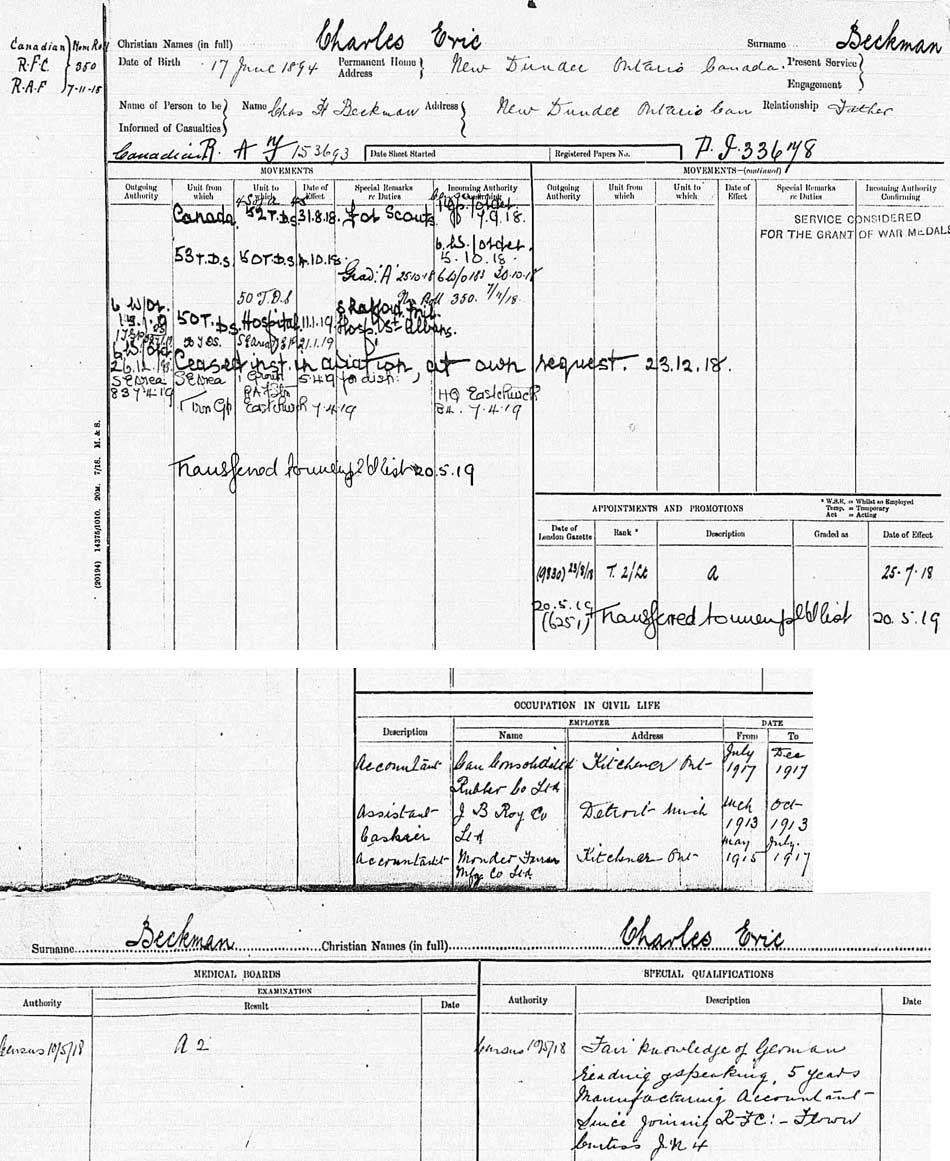 Canadian R.F.C. R.A.F Nom Roll 350 7-11-18
Christian Names (in full) Charles Eric Surname Beckman
Date of Birth 17 June 1894 Permanent Home Address New Dundee Ontario Canada. Present Service Engagement
Name of Person to be Informed of Casualties Name Chas H Beckman Address New Dundee Ontario Can Relationship Father
Canadian R. A F 153693 Date Sheet Started Registered Papers No. P.I.33678
MOVEMENTS MOVEMENTS—(continued)
Outgoing Authority Unit from which Unit to which Date of Effect Special Remarks re Duties Incoming Authority Confirming Outgoing Authority Unit from which Unit to which Date of Effect Special Remarks re Duties Incoming Authority Confirming
Canada 52 T.D.S 31.8.18. for Scouts 7.9.18.
SERVICE CONSIDERED
FOR THE GRANT OF WAR MEDALS
53 T.D.S 50 T.D.S 4.10.18. 5.10.18.
Grad. 'A' 25.10.18
50 T.D.S Nom Roll 350. 7/11/18.
50 T.D.S. Hospital 11.1.19 Hosp. St Albans.
21.1.19
Ceased inst. in aviation, at own request. 23.12.18.
26.12.18
SE Area SE Area 1 Group 5.4.19 for dish. HQ Eastchurch
83 7.4.19 Eastchurch 7.4.19 7.4.19
Transferred to unempl'd list 20.5.19
(20194) 14375/1010. 20M. 7/18. M. & S.
* W.S.E. = Whilst so Employed
Temp. = Temporary
Act = Acting
APPOINTMENTS AND PROMOTIONS
Date of London Gazette Rank * Description Graded as Date of Effect
(9830) 23/8/18 T. 2/Lt A 25.7.18
20.5.19 (6251) Transferred to unempl'd list 20.5.19
OCCUPATION IN CIVIL LIFE
Description EMPLOYER DATE
Name Address From To
Accountant Can Consolidated Rubber Co Ltd Kitchener Ont July 1917 Dec 1917
Assistant Cashier J B Roy Co Ltd Detroit Mich Mch 1913 Oct 1913
Accountant Mfg Co Ltd Kitchener Ont May 1915 July. 1917
Surname Beckman Christian Names (in full) Charles Eric
MEDICAL BOARDS SPECIAL QUALIFICATIONS
EXAMINATION
Authority Result Date Authority Description Date
Census 10/5/18 A 2 Census 10/5/18 Fair knowledge of German
reading & speaking, 5 years
Manufacturing Accountant
Since joining R.F.C:- Flown
Curtiss J.N 4